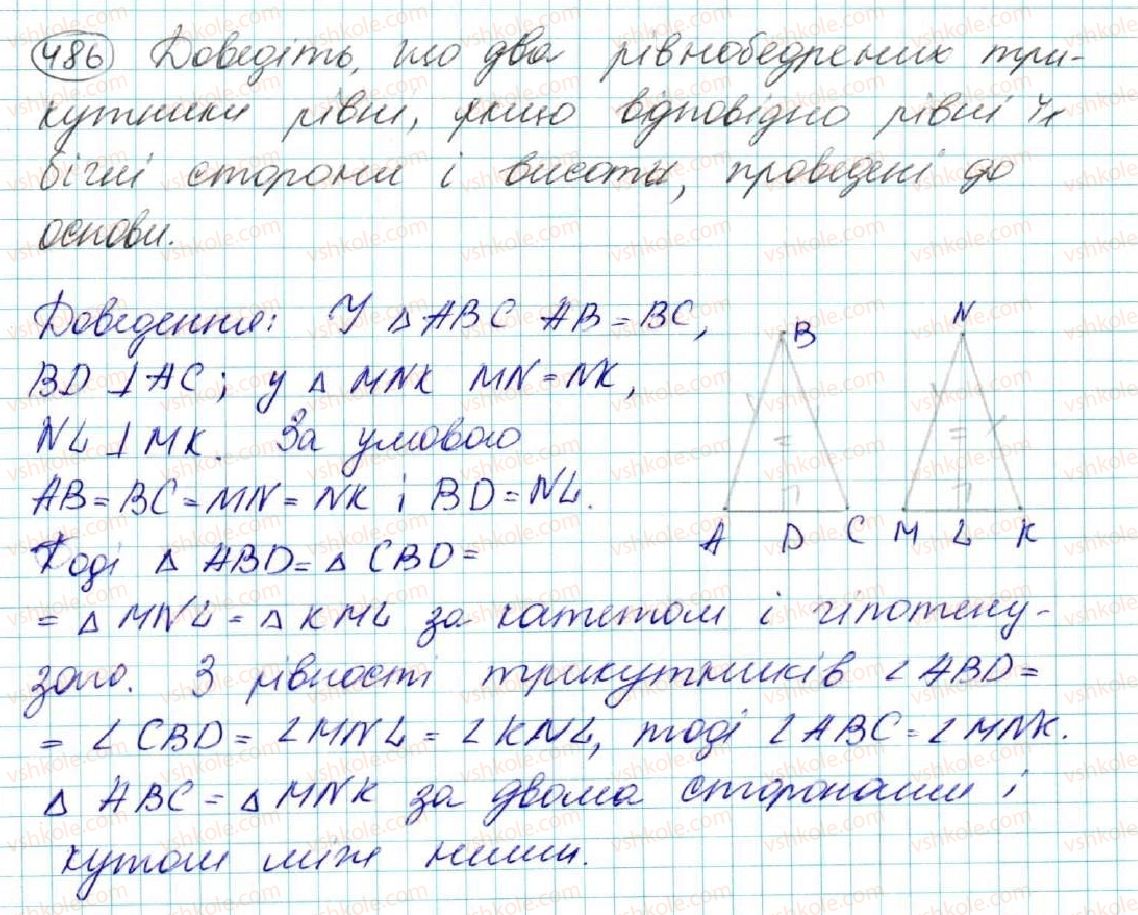 486 Доведіть, що два рівнобедрених три-
кутники рівні, якщо відповідно рівні їх
бічні сторони і висоти, проведені до
основи.
Доведення: У △ ABC AB = BC,
BD ⊥ AC; у △ MNK MN = NK,
NL ⊥ MK. За умовою
AB = BC = MN = NK і BD = NL.
Тоді △ ABD = △ CBD =
= △ MNL = △ KML за катетом і гіпотену-
зою. З рівності трикутників ∠ ABD =
= ∠ CBD = ∠ MNL = ∠ KNL, тоді ∠ ABC = ∠ MNK.
△ ABC = △ MNK за двома сторонами і
кутом між ними.
B N
A D C M L K
vshkole.com